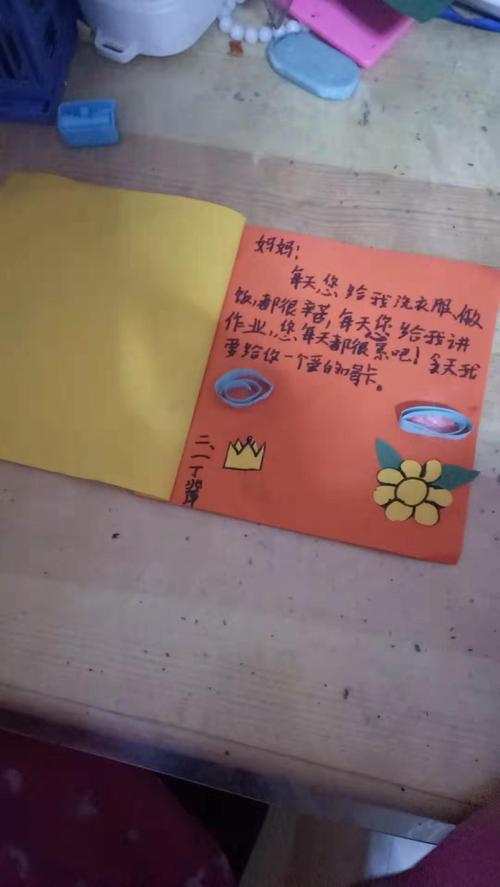 妈妈：
每天，您给我洗衣服、做
饭，都很辛苦，每天您给我讲
作业，您每天都很累吧！今天我
要给你一个爱的贺卡。
二、一丁